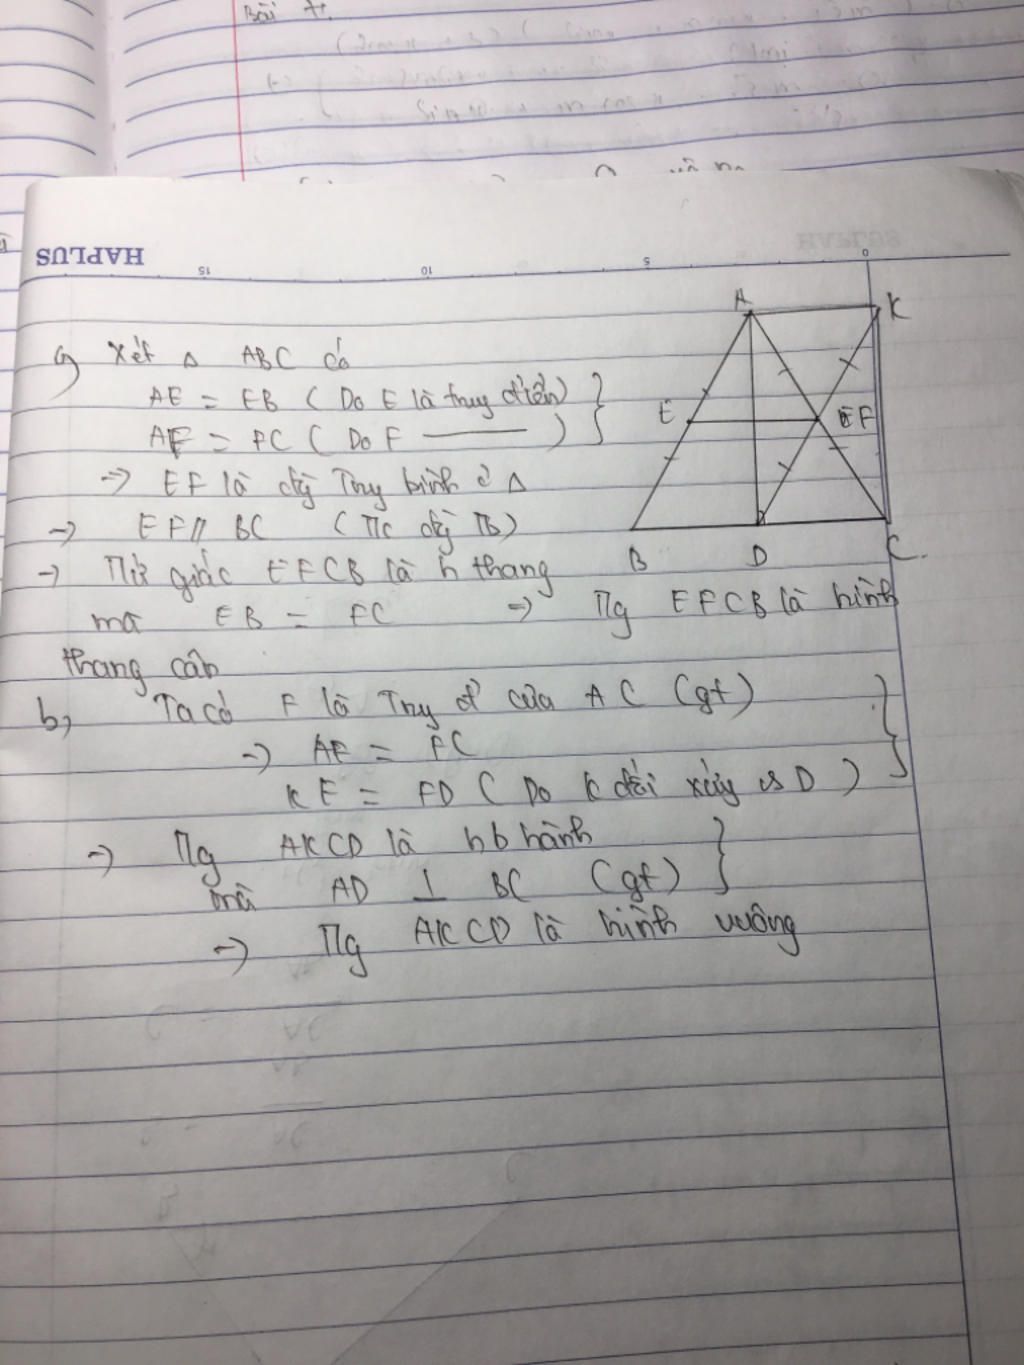 Bài
HAPLUS
15 10 5 0
a) Xét Δ ABC có
AE = EB ( Do E là trug điểm)
AF = FC ( Do F —— )
=> EF là đg Trug bình ở Δ
=> EF // BC ( TC đg TB)
=> Tứ giác EFCB là h thang
mà EB = FC => Tg EFCB là hình
thang cân
b, Ta có F là Trug đ' của AC (gt)
=> AF = FC
KF = FD ( Do K đối xứng vs D )
=> Tg AKCD là hb hành
mà AD ⊥ BC (gt)
=> Tg AKCD là hình vuông
A K
E F
B D C